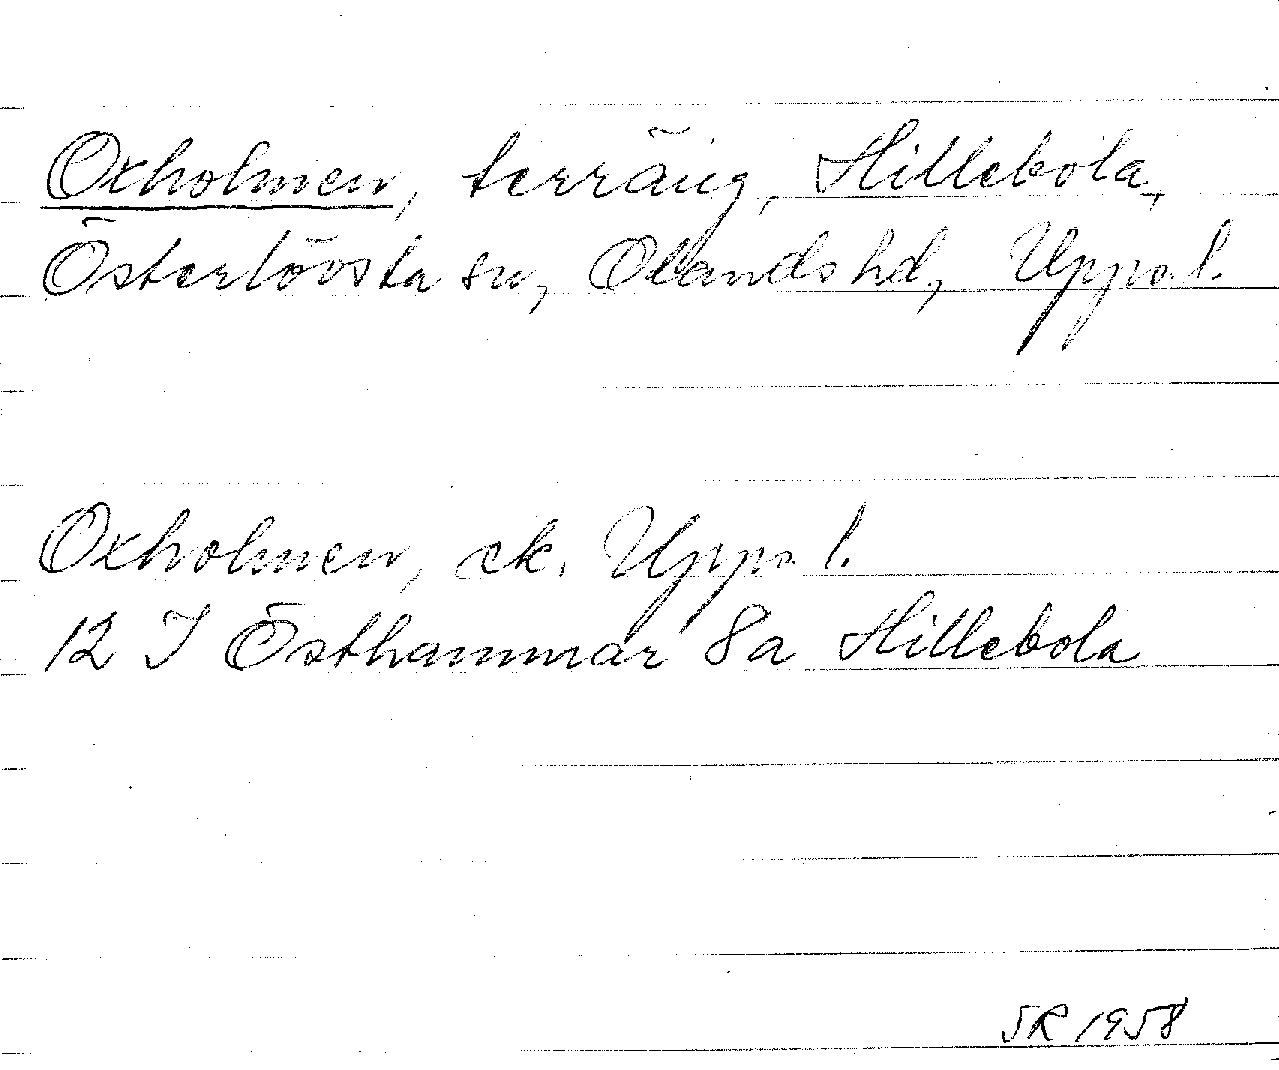 Oxholmen, terräng, Hillebola,
Österlövsta sn, Olands hd, Upps. l.
Oxholmen, ek. Upps. l.
12 I Östhammar 8a Hillebola
SR 1958